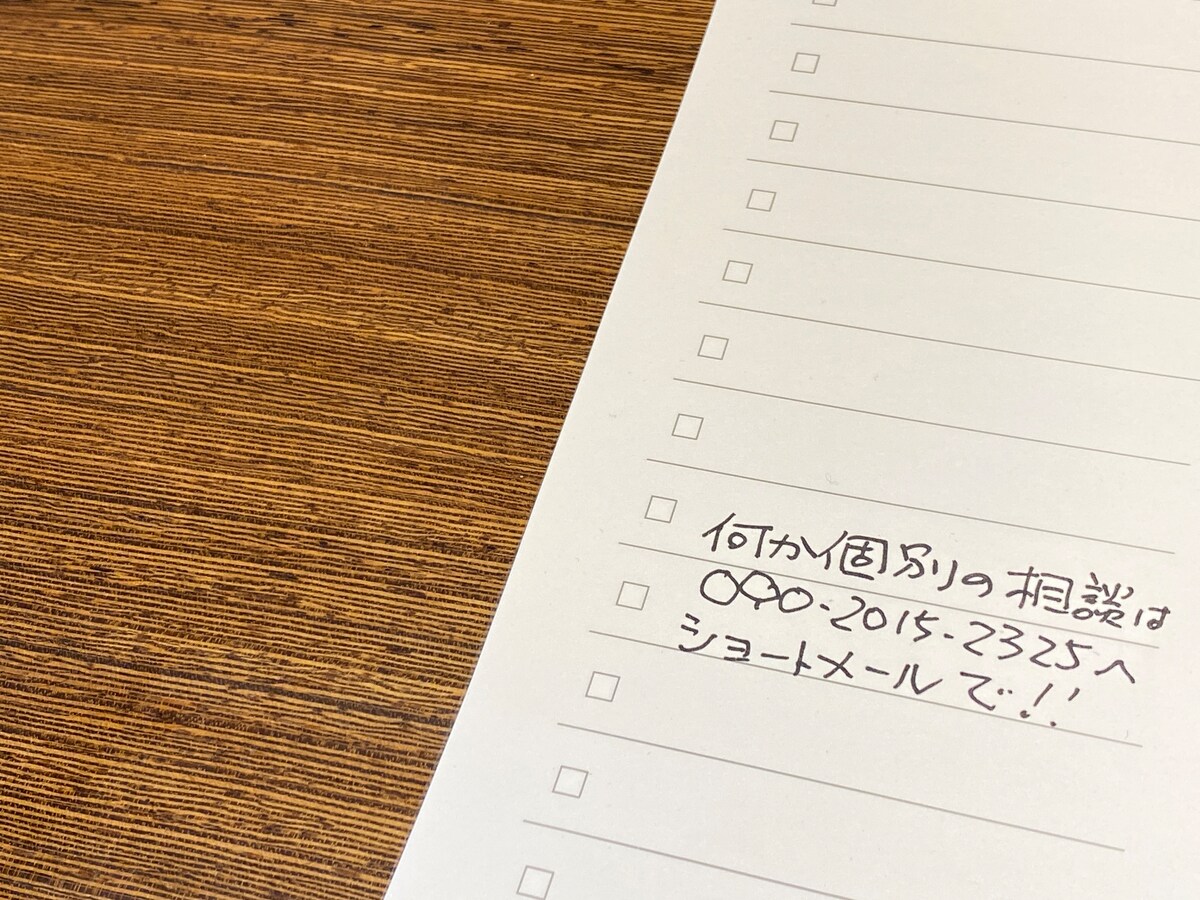 何か個別の相談は
090-2015-2325へ
ショートメールで!!